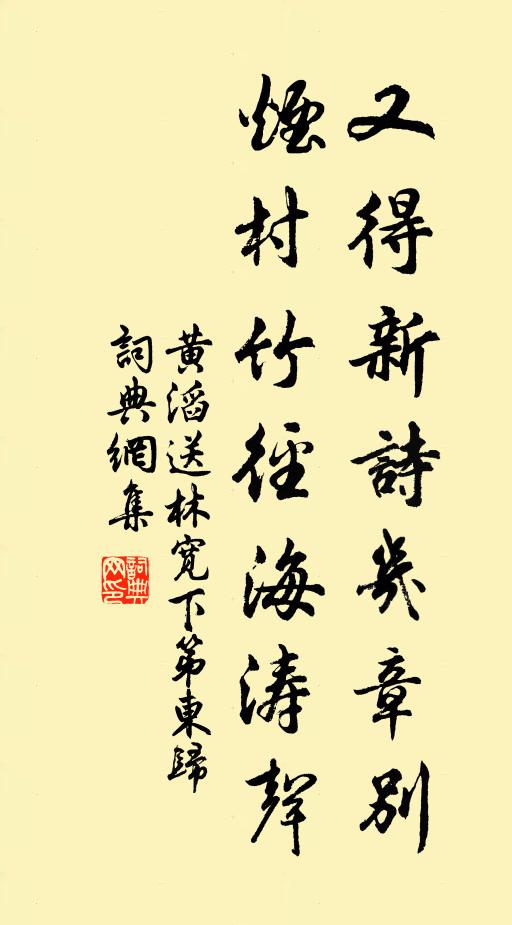 又得新詩幾章別
煙村竹徑海濤聲
黃滔送林寬下第東歸
詞典網集
詞典網印